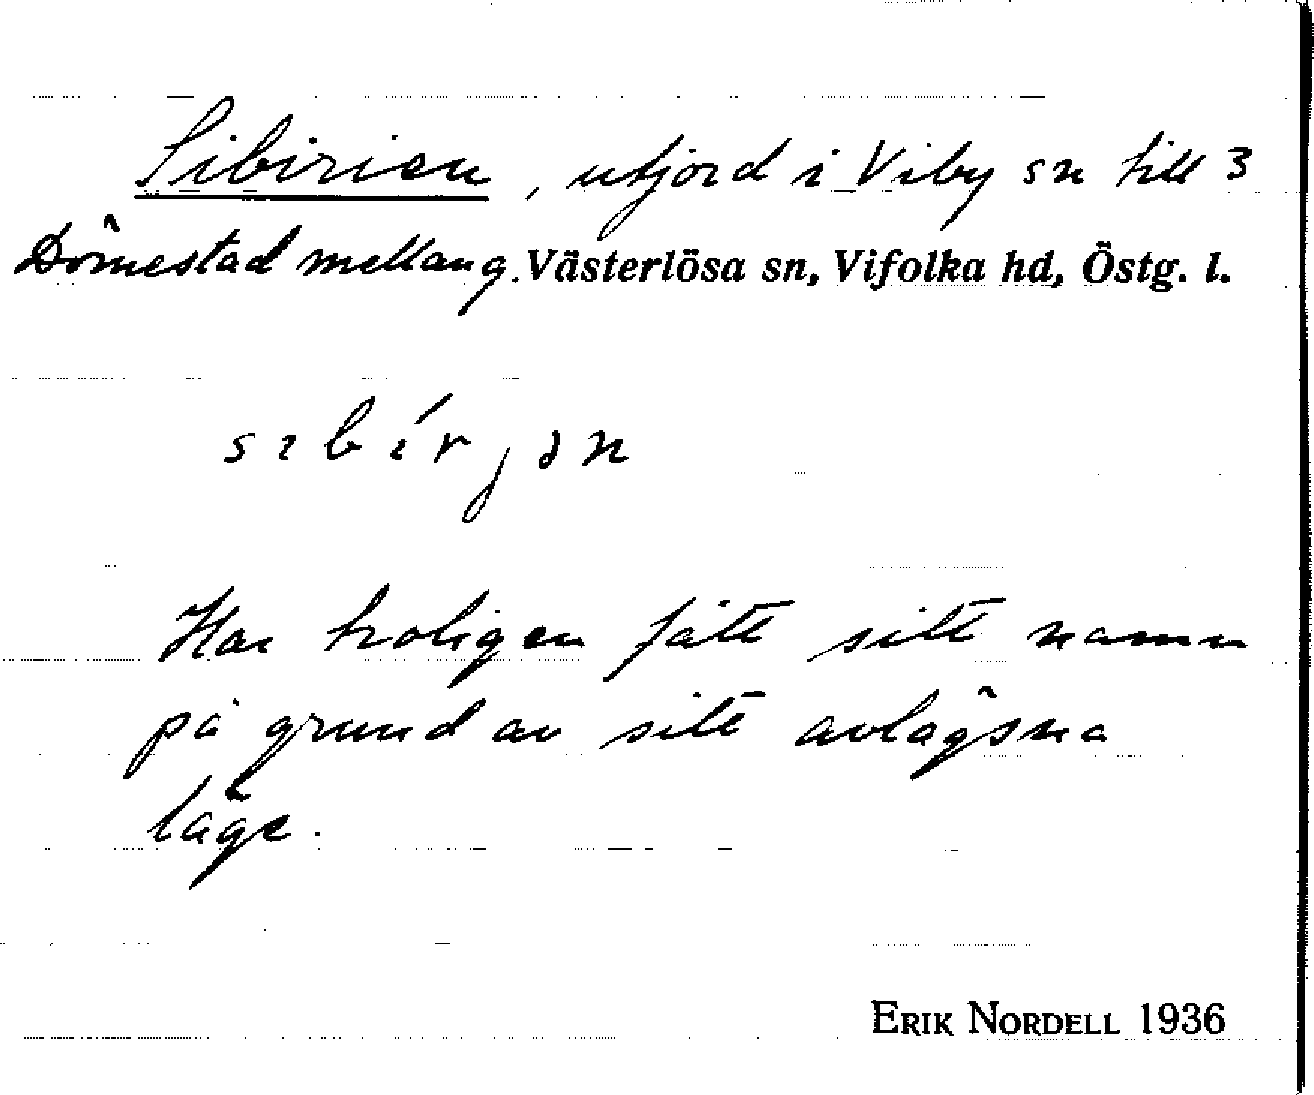 Sibirien, utjord i Viby sn till 3
Dömestad mellang. Västerlösa sn, Vifolka hd, Östg. l.
sıbírjən
Har troligen fått sitt namn
på grund av sitt avlägsna
läge.
ERIK NORDELL 1936